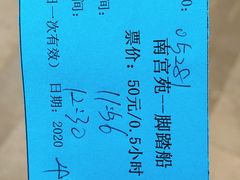 O: 05281
南宫苑一脚踏船
票价：50元/0.5小时
间： 11:56
间： 12:30
日一次有效） 日期：2020